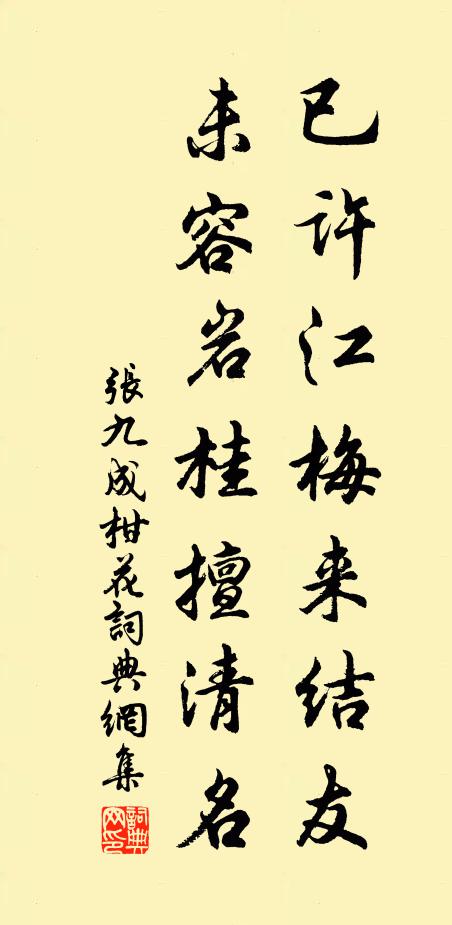 已许江梅来结友
未容岩桂擅清名
張九成柑花詞典網集
詞典网印